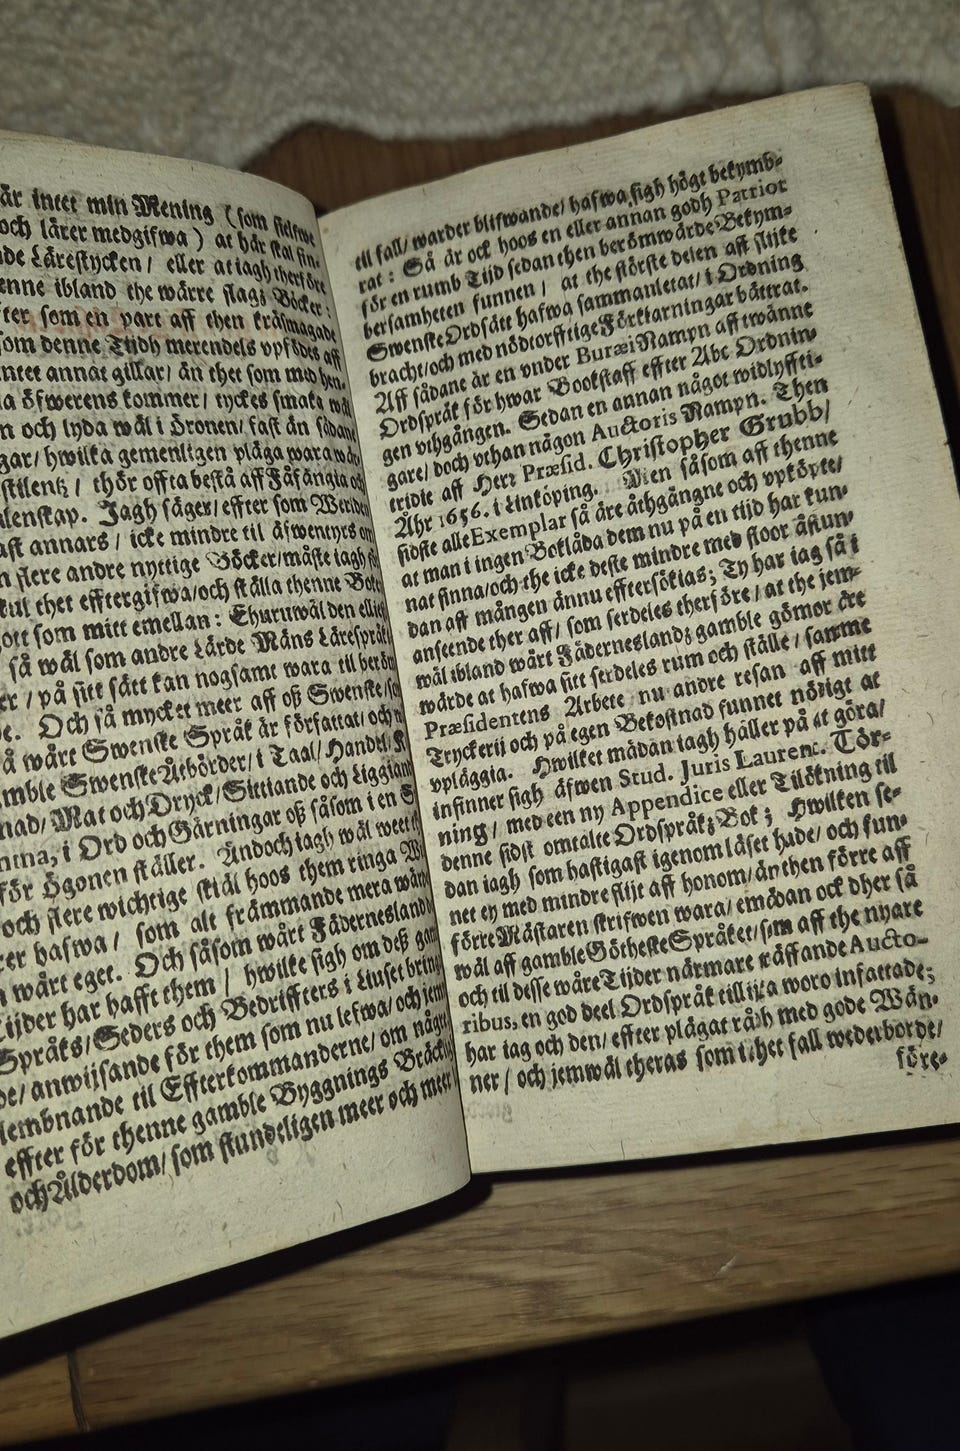 är intet min Mening (som sielfwe
och lärer medgifwa) at här skal fin-
de Lärestycken / eller at iagh therföre
enne ibland the wärre slagz Böcker:
ter som en part aff then kräsmagade
som denne Tijdh merendels vpfödes aff
intet annat gillar / än thet som med hen-
öfwerens kommer / tyckes smaka wäl
och lyda wäl i öronen / fast än sådane
gar / hwilka gemenligen pläga wara wär
stilentz / thör offta bestå aff Fåfängia och
lenskap. Jagh säger / effter som Werlden
ast annars / icke mindre til äfwentyrs om
flere andre nyttige Böcker / måste iagh
kul thet efftergifwa / och ställa thenne Bok
ott som mitt emellan: Ehuruwäl den ellies
så wäl som andre Lärde Mäns Lärespråk
er / på sitt sätt kan nogsamt wara til beröm
e. Och så mycket meer aff oß Swenske / so
å wårt Swenske Språk är författat / och
mble Swenske Åtbörder / i Taal / Handel /
nad / Mat och Dryck / Sittiande och Liggiand
ntna, i Ord och Gärningar oß såsom i en S
för Ögonen ställer. Ändoch iagh wäl weet
och flere wichtige skiäl hoos them ringa
er hafwa / som alt främmande mera wär
wårt eget. Och såsom wårt Fädernesland
ijder har hafft them / hwilke sigh om deß gam
Språks / Seders och Bedriffters i Liuset bring
de / anwijsande för them som nu lefwa / och jem
lembnande til Effterkommanderne / om någr
effter för thenne gamble Byggnings Bräck
och Ålderdom / som stundeligen meer och meer
till fall / warder blifwande / hafwa sigh högt bekymb-
rat: Så är ock hoos en eller annan godh Patriot
för en rumb Tijd sedan then berömwärde Bekym-
bersamheten funnen / at the största delen aff slijke
Swenske Ordsätt hafwa sammanletat / i Ordning
bracht / och med nödtorfftige Förklarningar bättrat.
Aff sådane är en vnder Buræi Nampn aff twänne
Ordspråk för hwar Bookstaff effter Abc Ordnin-
gen vthgången. Sedan en annan något widlyffti-
gare / doch vthan någon Auctoris Nampn. Then
tridie aff Herr Præsid. Christopher Grubb /
Åhr 1656. i Linköping. Men såsom aff thenne
sidste alle Exemplar så äre åthgångne och vpköpte /
at man i ingen Boklåda dem nu på en tijd har kun-
nat finna / och the icke deste mindre med stoor åstun-
dan aff mången ännu efftersökias; Ty har iag så i
anseende ther aff / som serdeles therföre / at the jem-
wäl ibland wårt Fäderneslandz gamble gömor äre
wärde at hafwa sitt serdeles rum och ställe / samme
Præsidentens Arbete nu andre resan aff mitt
Tryckerij och på egen Bekostnad funnet nödigt at
vpläggia. Hwilket mädan iagh håller på at göra /
infinner sigh äfwen Stud. Juris Laurent. Tör-
ning / med een ny Appendice eller Tilökning till
denne sidst omtalte Ordspråkz Bok; Hwilken se-
dan iagh som hastigast igenom läset hade / och fun-
net ey med mindre flijt aff honom / än then förre aff
förre Mästaren skrifwen wara / emädan ock dher så
wäl aff gamble Götheste Språket / som aff the nyare
och til desse wåre Tijder närmare räffande Aucto-
ribus, en god deel Ordspråk tillijka woro infattade;
har iag och den / effter plägat rådh med gode Wän-
ner / och jemwäl theras som i thet fall wederborde /
före-